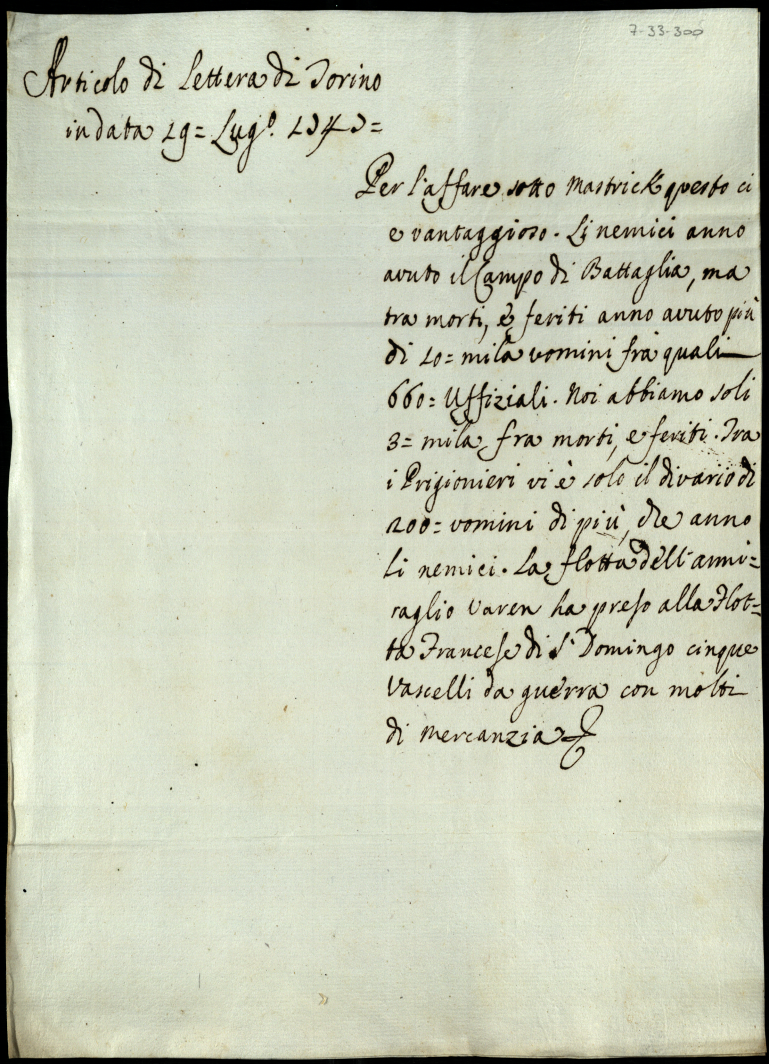 7-33-300
Articolo di Lettera di Torino
in data 19= Lugo. 1747=
Per l'affare sotto Mastrick questo ci
e vantaggioso. Li nemici anno
avuto il Campo di Battaglia, ma
tra morti, e feriti anno avuto più
di 10= mila uomini frà quali
660= Uffiziali. Noi abbiamo soli
3= mila fra morti, e feriti. Tra
i Prigionieri vi è solo il divario di
200= uomini di più, che anno
Li nemici. La flotta dell'ammi=
raglio Varen ha preso alla Flot=
ta Francese di S. Domingo cinque
Vascelli da guerra con molti
di mercanzia